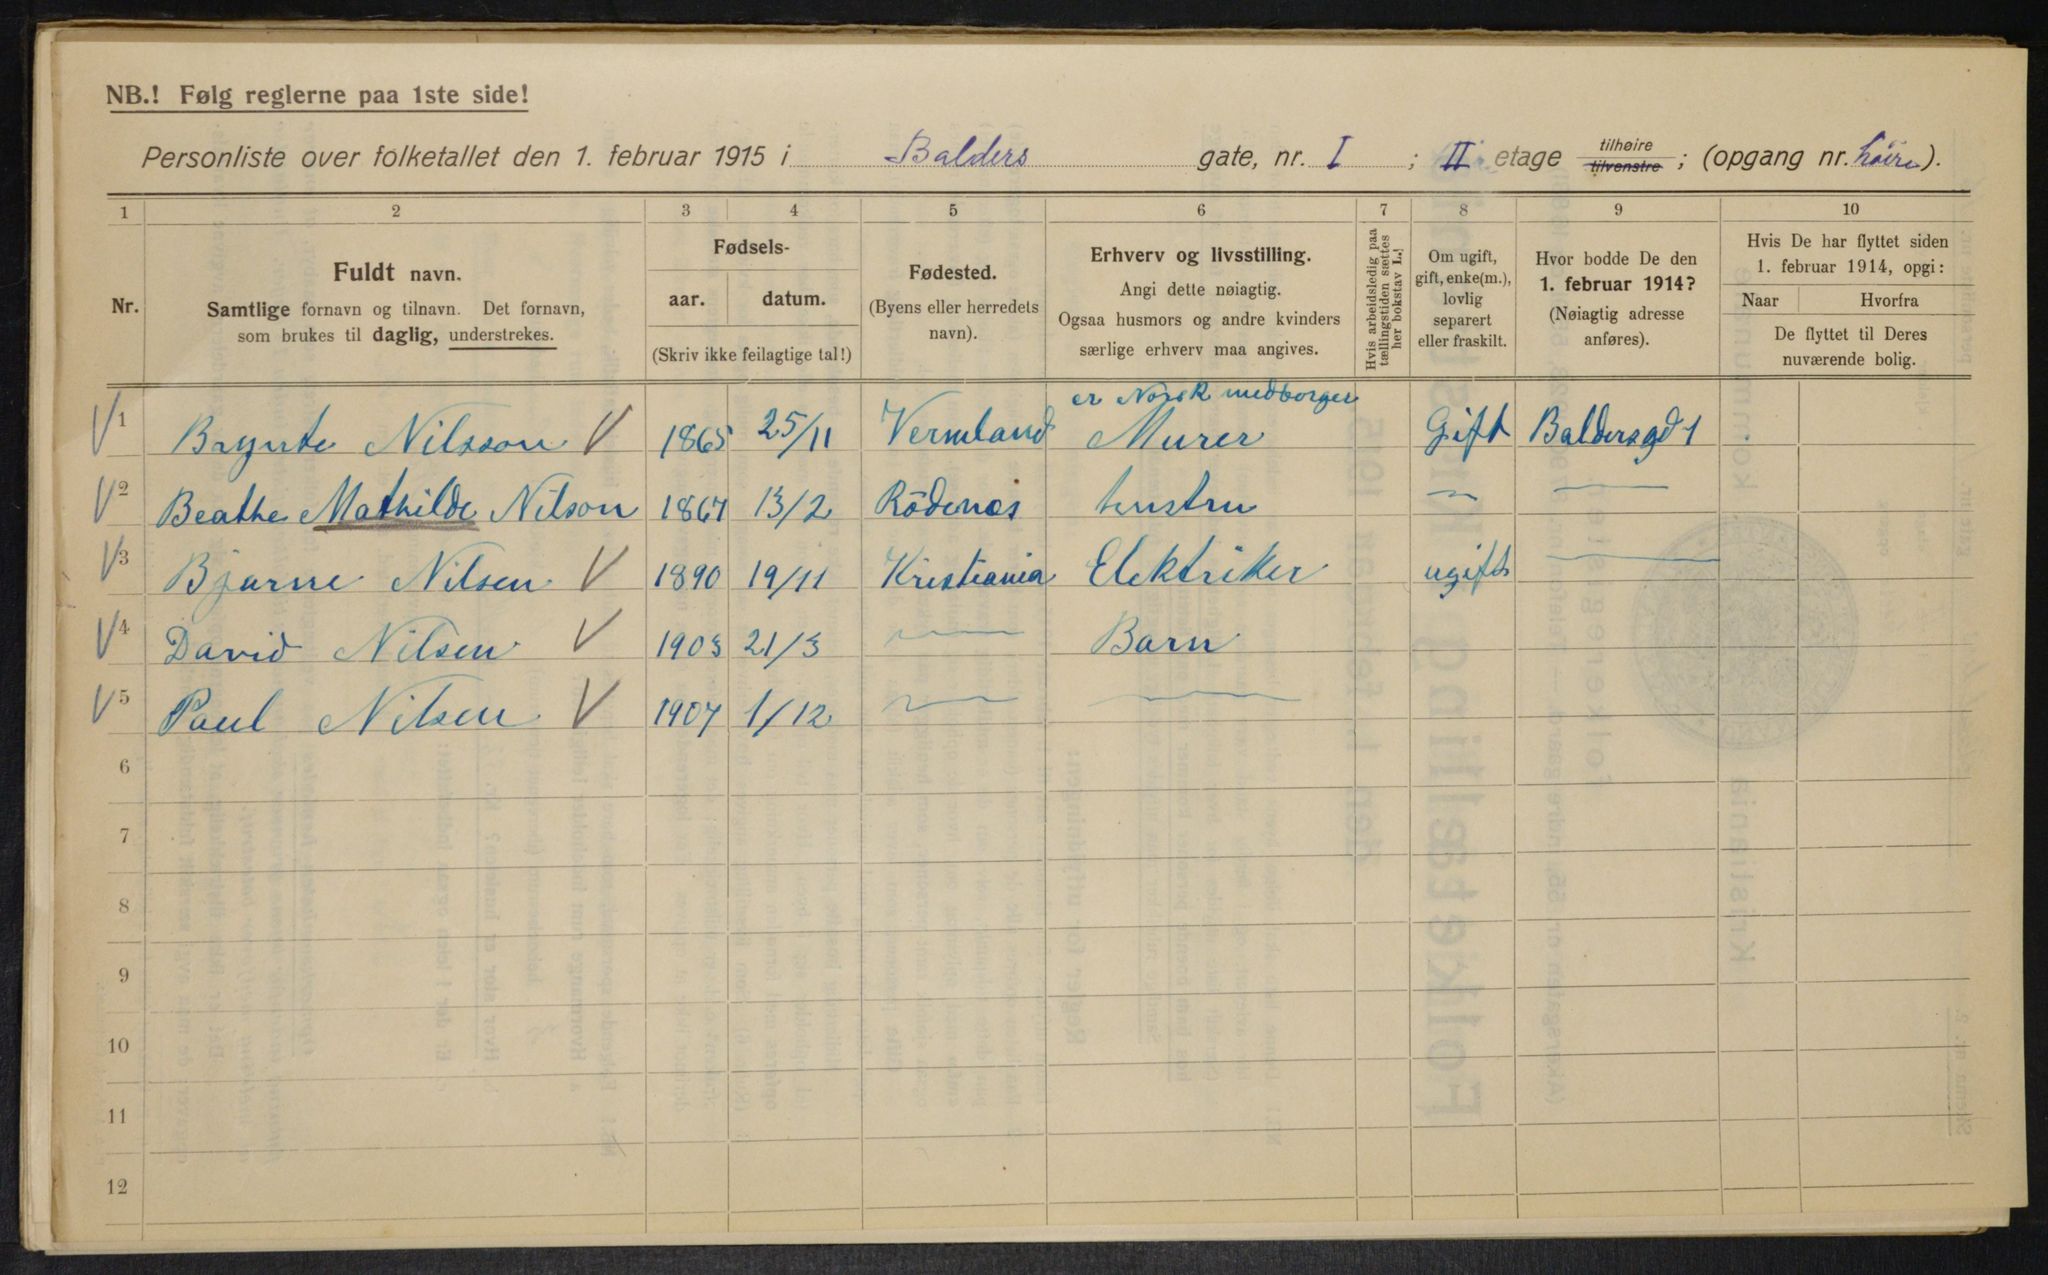 NB.! Følg reglerne paa 1ste side!
Personliste over folketallet den 1. februar 1915 i Balders gate, nr. I ; II etage tilhøire tilvenstre ; (opgang nr. höire).
1 2 3 4 5 6 7 8 9 10
Nr.
Fuldt navn.
Samtlige fornavn og tilnavn. Det fornavn,
som brukes til daglig, understrekes.
Fødsels-
aar. datum.
(Skriv ikke feilagtige tal!)
Fødested.
(Byens eller herredets
navn).
Erhverv og livsstilling.
Angi dette nøiagtig.
Ogsaa husmors og andre kvinders
særlige erhverv maa angives.
Hvis arbeidsledig paa
tællingstiden sættes
her bokstav L.!
Om ugift,
gift, enke(m.),
lovlig
separert
eller fraskilt.
Hvor bodde De den
1. februar 1914?
(Nøiagtig adresse
anføres).
Hvis De har flyttet siden
1. februar 1914, opgi:
Naar Hvorfra
De flyttet til Deres
nuværende bolig.
er Norsk medborger
1 Brynte Nilsson V 1865 25/11 Vermland Murer Gift Baldersgd 1
2 Beathe Mathilde Nilson 1867 13/2 Rödenes hustru — —
3 Bjarne Nilsen V 1890 19/11 Kristiania Elektriker ugift —
4 David Nilsen V 1903 21/3 — Barn
5 Paul Nilsen V 1907 1/12 — —
6
7
8
9
10
11
12